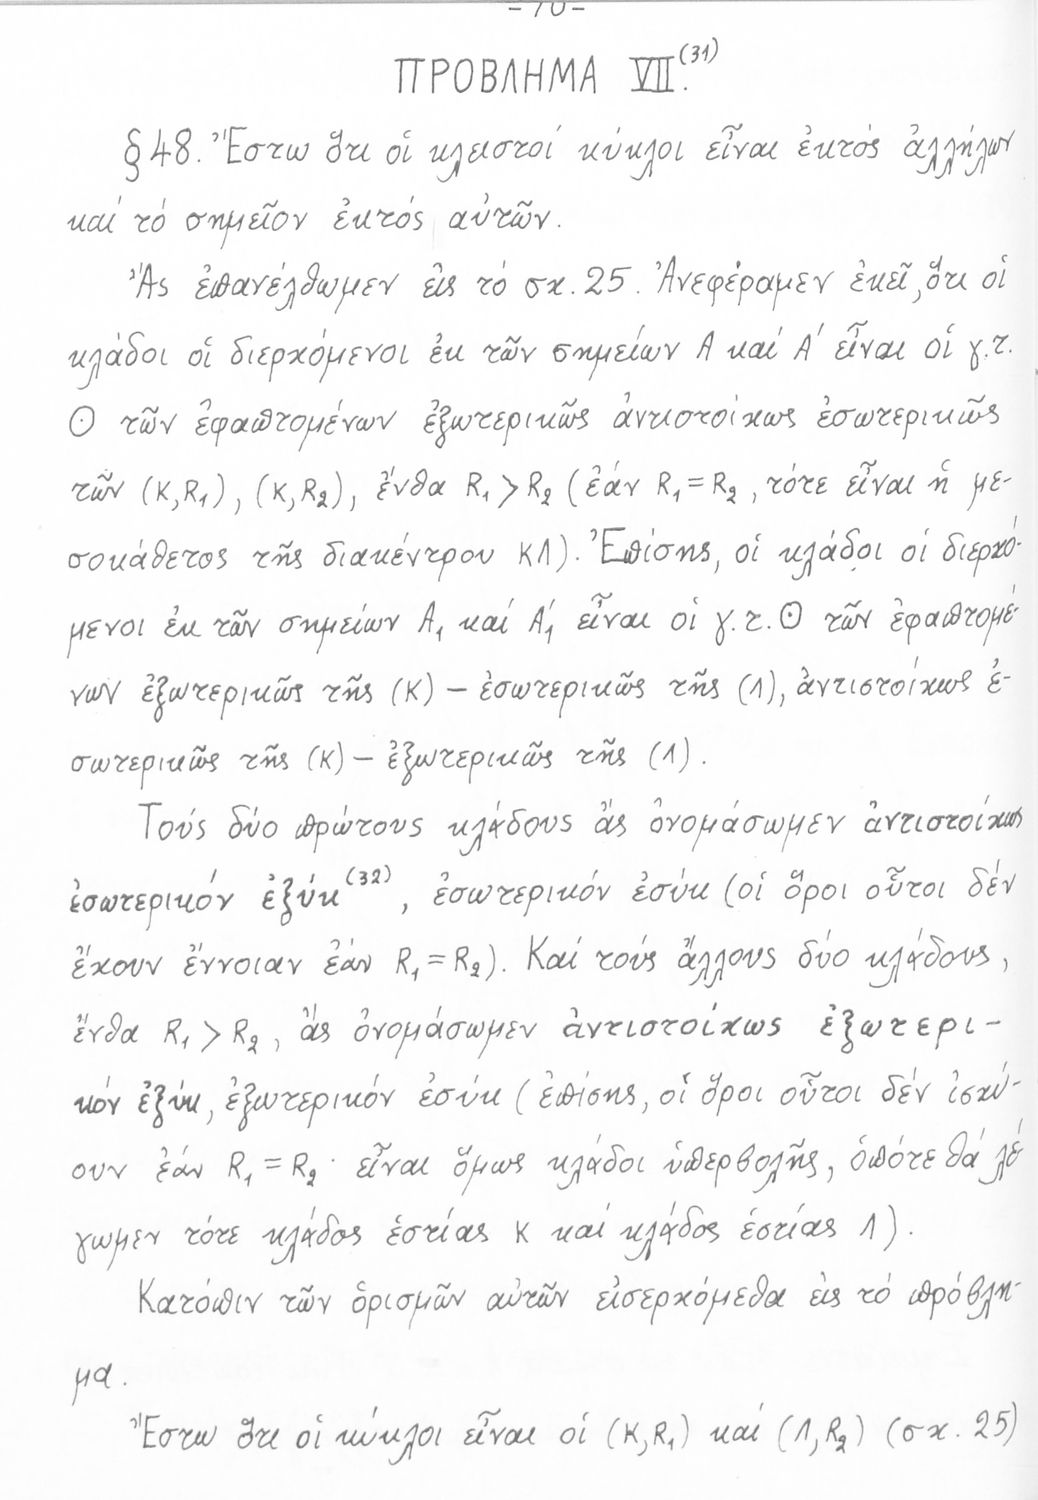 - 70 -
ΠΡΟΒΛΗΜΑ VII.(31)
§ 48. Ἔστω ὅτι οἱ κλειστοί κύκλοι εἶναι ἐκτός ἀλλήλων
καί τό σημεῖον ἐκτός αὐτῶν.
Ἄς ἐπανέλθωμεν εἰς τό σχ. 25. Ἀνεφέραμεν ἐκεῖ, ὅτι οἱ
κλάδοι οἱ διερχόμενοι ἐκ τῶν σημείων Α καί Α΄ εἶναι οἱ γ.τ.
Θ τῶν ἐφαπτομένων ἐξωτερικῶς ἀντιστοίχως ἐσωτερικῶς
τῶν (Κ,R₁), (Κ,R₂), ἔνθα R₁ > R₂ (ἐάν R₁ = R₂, τότε εἶναι ἡ με-
σοκάθετος τῆς διακέντρου ΚΛ). Ἐπίσης, οἱ κλάδοι οἱ διερχό-
μενοι ἐκ τῶν σημείων Α₁ καί Α₁΄ εἶναι οἱ γ.τ. Θ τῶν ἐφαπτομέ-
νων ἐξωτερικῶς τῆς (Κ) – ἐσωτερικῶς τῆς (Λ), ἀντιστοίχως ἐ-
σωτερικῶς τῆς (Κ) – ἐξωτερικῶς τῆς (Λ).
Τούς δύο πρώτους κλάδους ἄς ὀνομάσωμεν ἀντιστοίχως
ἐσωτερικόν ἐξύκ(32), ἐσωτερικόν ἐσύκ (οἱ ὅροι οὗτοι δέν
ἔχουν ἔννοιαν ἐάν R₁ = R₂). Καί τούς ἄλλους δύο κλάδους,
ἔνθα R₁ > R₂, ἄς ὀνομάσωμεν ἀντιστοίχως ἐξωτερι-
κόν ἐξύκ, ἐξωτερικόν ἐσύκ (ἐπίσης, οἱ ὅροι οὗτοι δέν ἰσχύ-
ουν ἐάν R₁ = R₂· εἶναι ὅμως κλάδοι ὑπερβολῆς, ὁπότε θά λέ-
γωμεν τότε κλάδος ἑστίας Κ καί κλάδος ἑστίας Λ).
Κατόπιν τῶν ὁρισμῶν αὐτῶν εἰσερχόμεθα εἰς τό πρόβλη-
μα.
Ἔστω ὅτι οἱ κύκλοι εἶναι οἱ (Κ,R₁) καί (Λ,R₂) (σχ. 25)